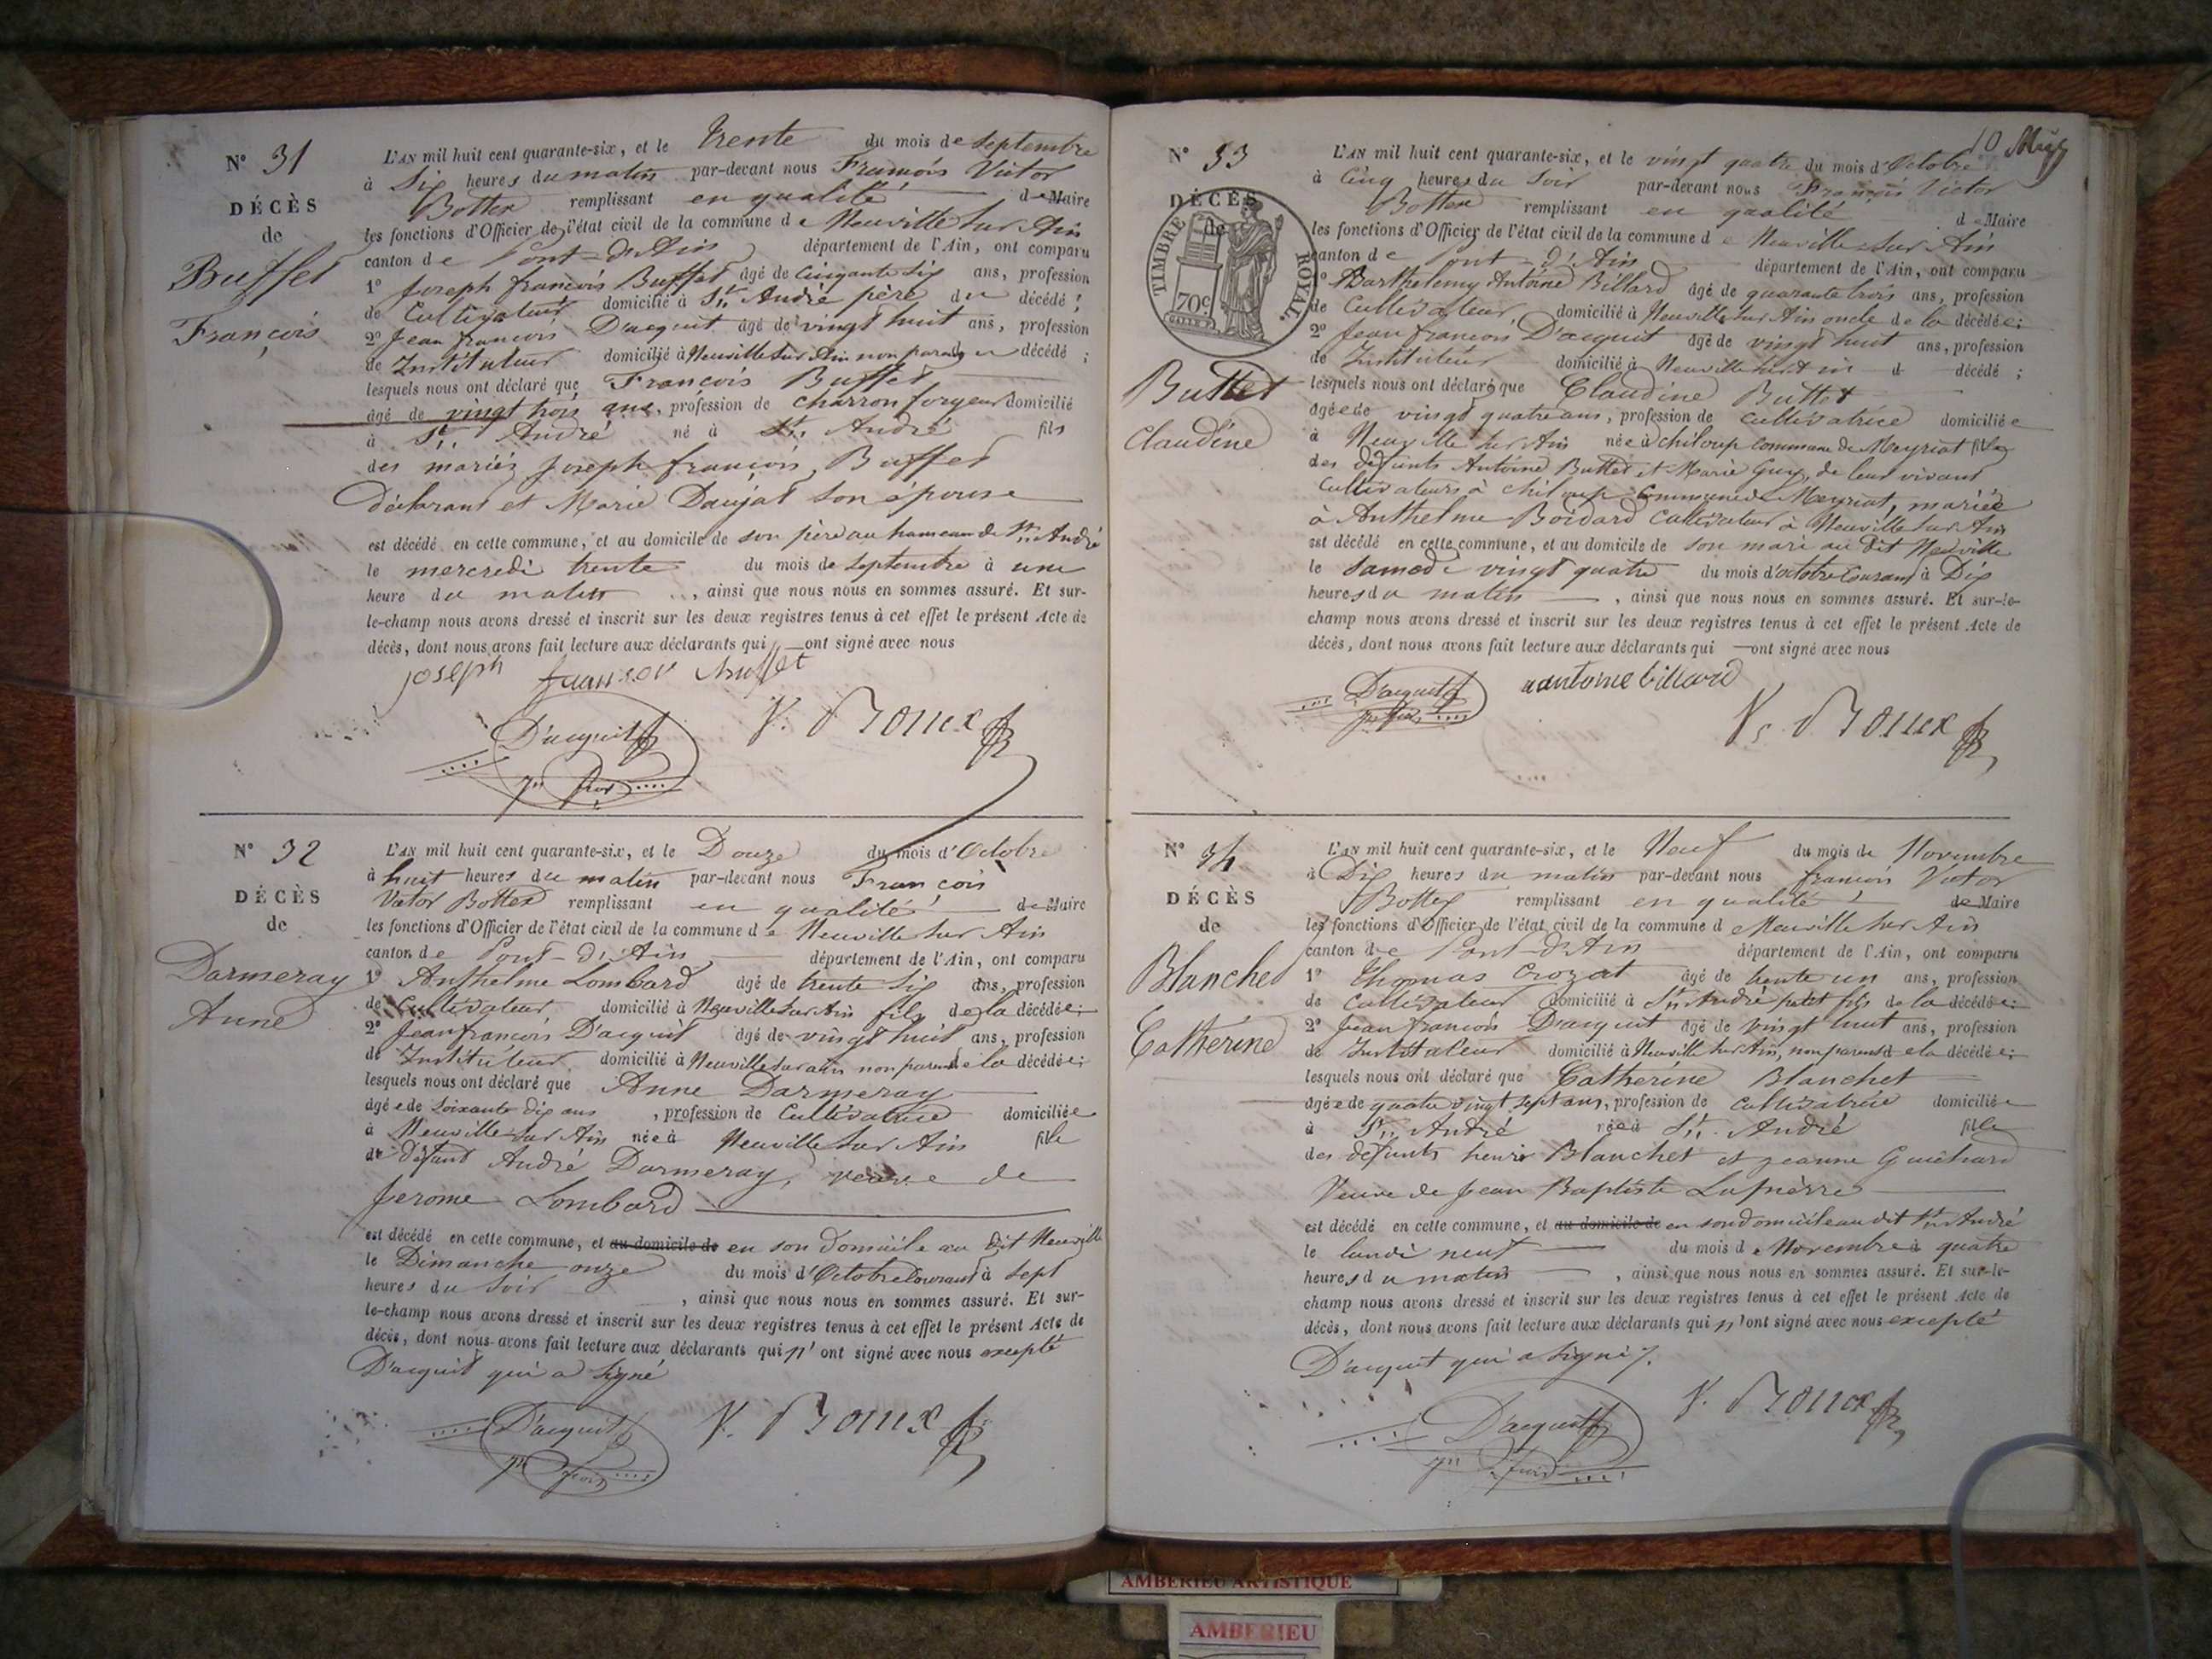 N° 31
DÉCÈS
de
Buffet
François
L'AN mil huit cent quarante-six, et le trente du mois de septembre
à Six heures du matin par-devant nous François Victor
Bottex remplissant en qualité de Maire
les fonctions d'Officier de l'état civil de la commune de Neuville sur Ain
canton de Pont-d'Ain département de l'Ain, ont comparu
1° Joseph françois Buffet âgé de cinquante six ans, profession
de Cultivateur domicilié à St. André père du décédé;
2° Jean françois D'acquit âgé de vingt huit ans, profession
de Instituteur domicilié à Neuville sur Ain non parent du décédé;
lesquels nous ont déclaré que François Buffet
âgé de vingt trois ans, profession de charron forgeur domicilié
à St. André né à St. André fils
des mariés Joseph françois Buffet
déclarant et Marie Daujat son épouse
est décédé en cette commune, et au domicile de son père au hameau de St. André
le mercredi trente du mois de septembre à une
heure du matin, ainsi que nous nous en sommes assuré. Et sur-
le-champ nous avons dressé et inscrit sur les deux registres tenus à cet effet le présent Acte de
décès, dont nous avons fait lecture aux déclarants qui ont signé avec nous
joseph françois buffet
D'acquit
jn fçois
V. Bottex
N° 32
DÉCÈS
de
Darmeray
Anne
L'AN mil huit cent quarante-six, et le Douze du mois d'Octobre
à huit heures du matin par-devant nous François
Victor Bottex remplissant en qualité de Maire
les fonctions d'Officier de l'état civil de la commune de Neuville sur Ain
canton de Pont-d'Ain département de l'Ain, ont comparu
1° Anthelme Lombard âgé de trente six ans, profession
de Cultivateur domicilié à Neuville sur Ain fils de la décédée;
2° Jean françois D'acquit âgé de vingt huit ans, profession
de Instituteur domicilié à Neuville sur ain non parent de la décédée;
lesquels nous ont déclaré que Anne Darmeray
âgée de soixante dix ans, profession de Cultivatrice domiciliée
à Neuville sur Ain née à Neuville sur Ain fille
de défunt André Darmeray, veuve de
Jerome Lombard
est décédé en cette commune, et au domicile de en son domicile au dit Neuville
le Dimanche onze du mois d'Octobre courant à sept
heures du soir, ainsi que nous nous en sommes assuré. Et sur-
le-champ nous avons dressé et inscrit sur les deux registres tenus à cet effet le présent Acte de
décès, dont nous avons fait lecture aux déclarants qui n'ont signé avec nous excepté
D'acquit qui a signé
D'acquit
jn fçois
V. Bottex
10
N° 33
DÉCÈS
de
TIMBRE ROYAL
70c
Buttet
Claudine
L'AN mil huit cent quarante-six, et le vingt quatre du mois d'Octobre
à Cinq heures du Soir par-devant nous François Victor
Bottex remplissant en qualité de Maire
les fonctions d'Officier de l'état civil de la commune de Neuville sur Ain
canton de Pont-d'Ain département de l'Ain, ont comparu
1° Barthelemy Antoine Billard âgé de quarante trois ans, profession
de Cultivateur domicilié à Neuville sur Ain oncle de la décédée;
2° Jean françois D'acquit âgé de vingt huit ans, profession
de Instituteur domicilié à Neuville sur Ain d décédé;
lesquels nous ont déclaré que Claudine Buttet
âgée de vingt quatre ans, profession de cultivatrice domiciliée
à Neuville sur Ain née à chiloup commune de Meyriat fille
des défunts Antoine Buttet et Marie Guy, de leur vivant
Cultivateurs à chiloup commune de Meyriat, mariée
à Anthelme Boidard Cultivateur à Neuville sur Ain
est décédé en cette commune, et au domicile de son mari au dit Neuville
le Samedi vingt quatre du mois d'octobre courant à Dix
heures du matin, ainsi que nous nous en sommes assuré. Et sur-le-
champ nous avons dressé et inscrit sur les deux registres tenus à cet effet le présent Acte de
décès, dont nous avons fait lecture aux déclarants qui ont signé avec nous
D'acquit
jn fçois
antoine billard
V. Bottex
N° 34
DÉCÈS
de
Blanchet
Catherine
L'AN mil huit cent quarante-six, et le Neuf du mois de Novembre
à Dix heures du matin par-devant nous françois Victor
Bottex remplissant en qualité de Maire
les fonctions d'Officier de l'état civil de la commune de Neuville sur Ain
canton de Pont-d'Ain département de l'Ain, ont comparu
1° Thomas Crozat âgé de trente un ans, profession
de Cultivateur domicilié à St. André petit fils de la décédée;
2° Jean françois D'acquit âgé de vingt huit ans, profession
de Instituteur domicilié à Neuville sur Ain, non parent de la décédée;
lesquels nous ont déclaré que Catherine Blanchet
âgée de quatre vingt sept ans, profession de cultivatrice domiciliée
à St. André née à St. André fille
des défunts henri Blanchet et jeanne Guichard
Veuve de Jean Baptiste Lapierre
est décédé en cette commune, et au domicile de en son domicile au dit St. André
le lundi neuf du mois de Novembre à quatre
heures du matin, ainsi que nous nous en sommes assuré. Et sur-le-
champ nous avons dressé et inscrit sur les deux registres tenus à cet effet le présent Acte de
décès, dont nous avons fait lecture aux déclarants qui n'ont signé avec nous excepté
D'acquit qui a signé.
D'acquit
jn fçois
V. Bottex
AMBERIEU ARTISTIQUE
AMBERIEU